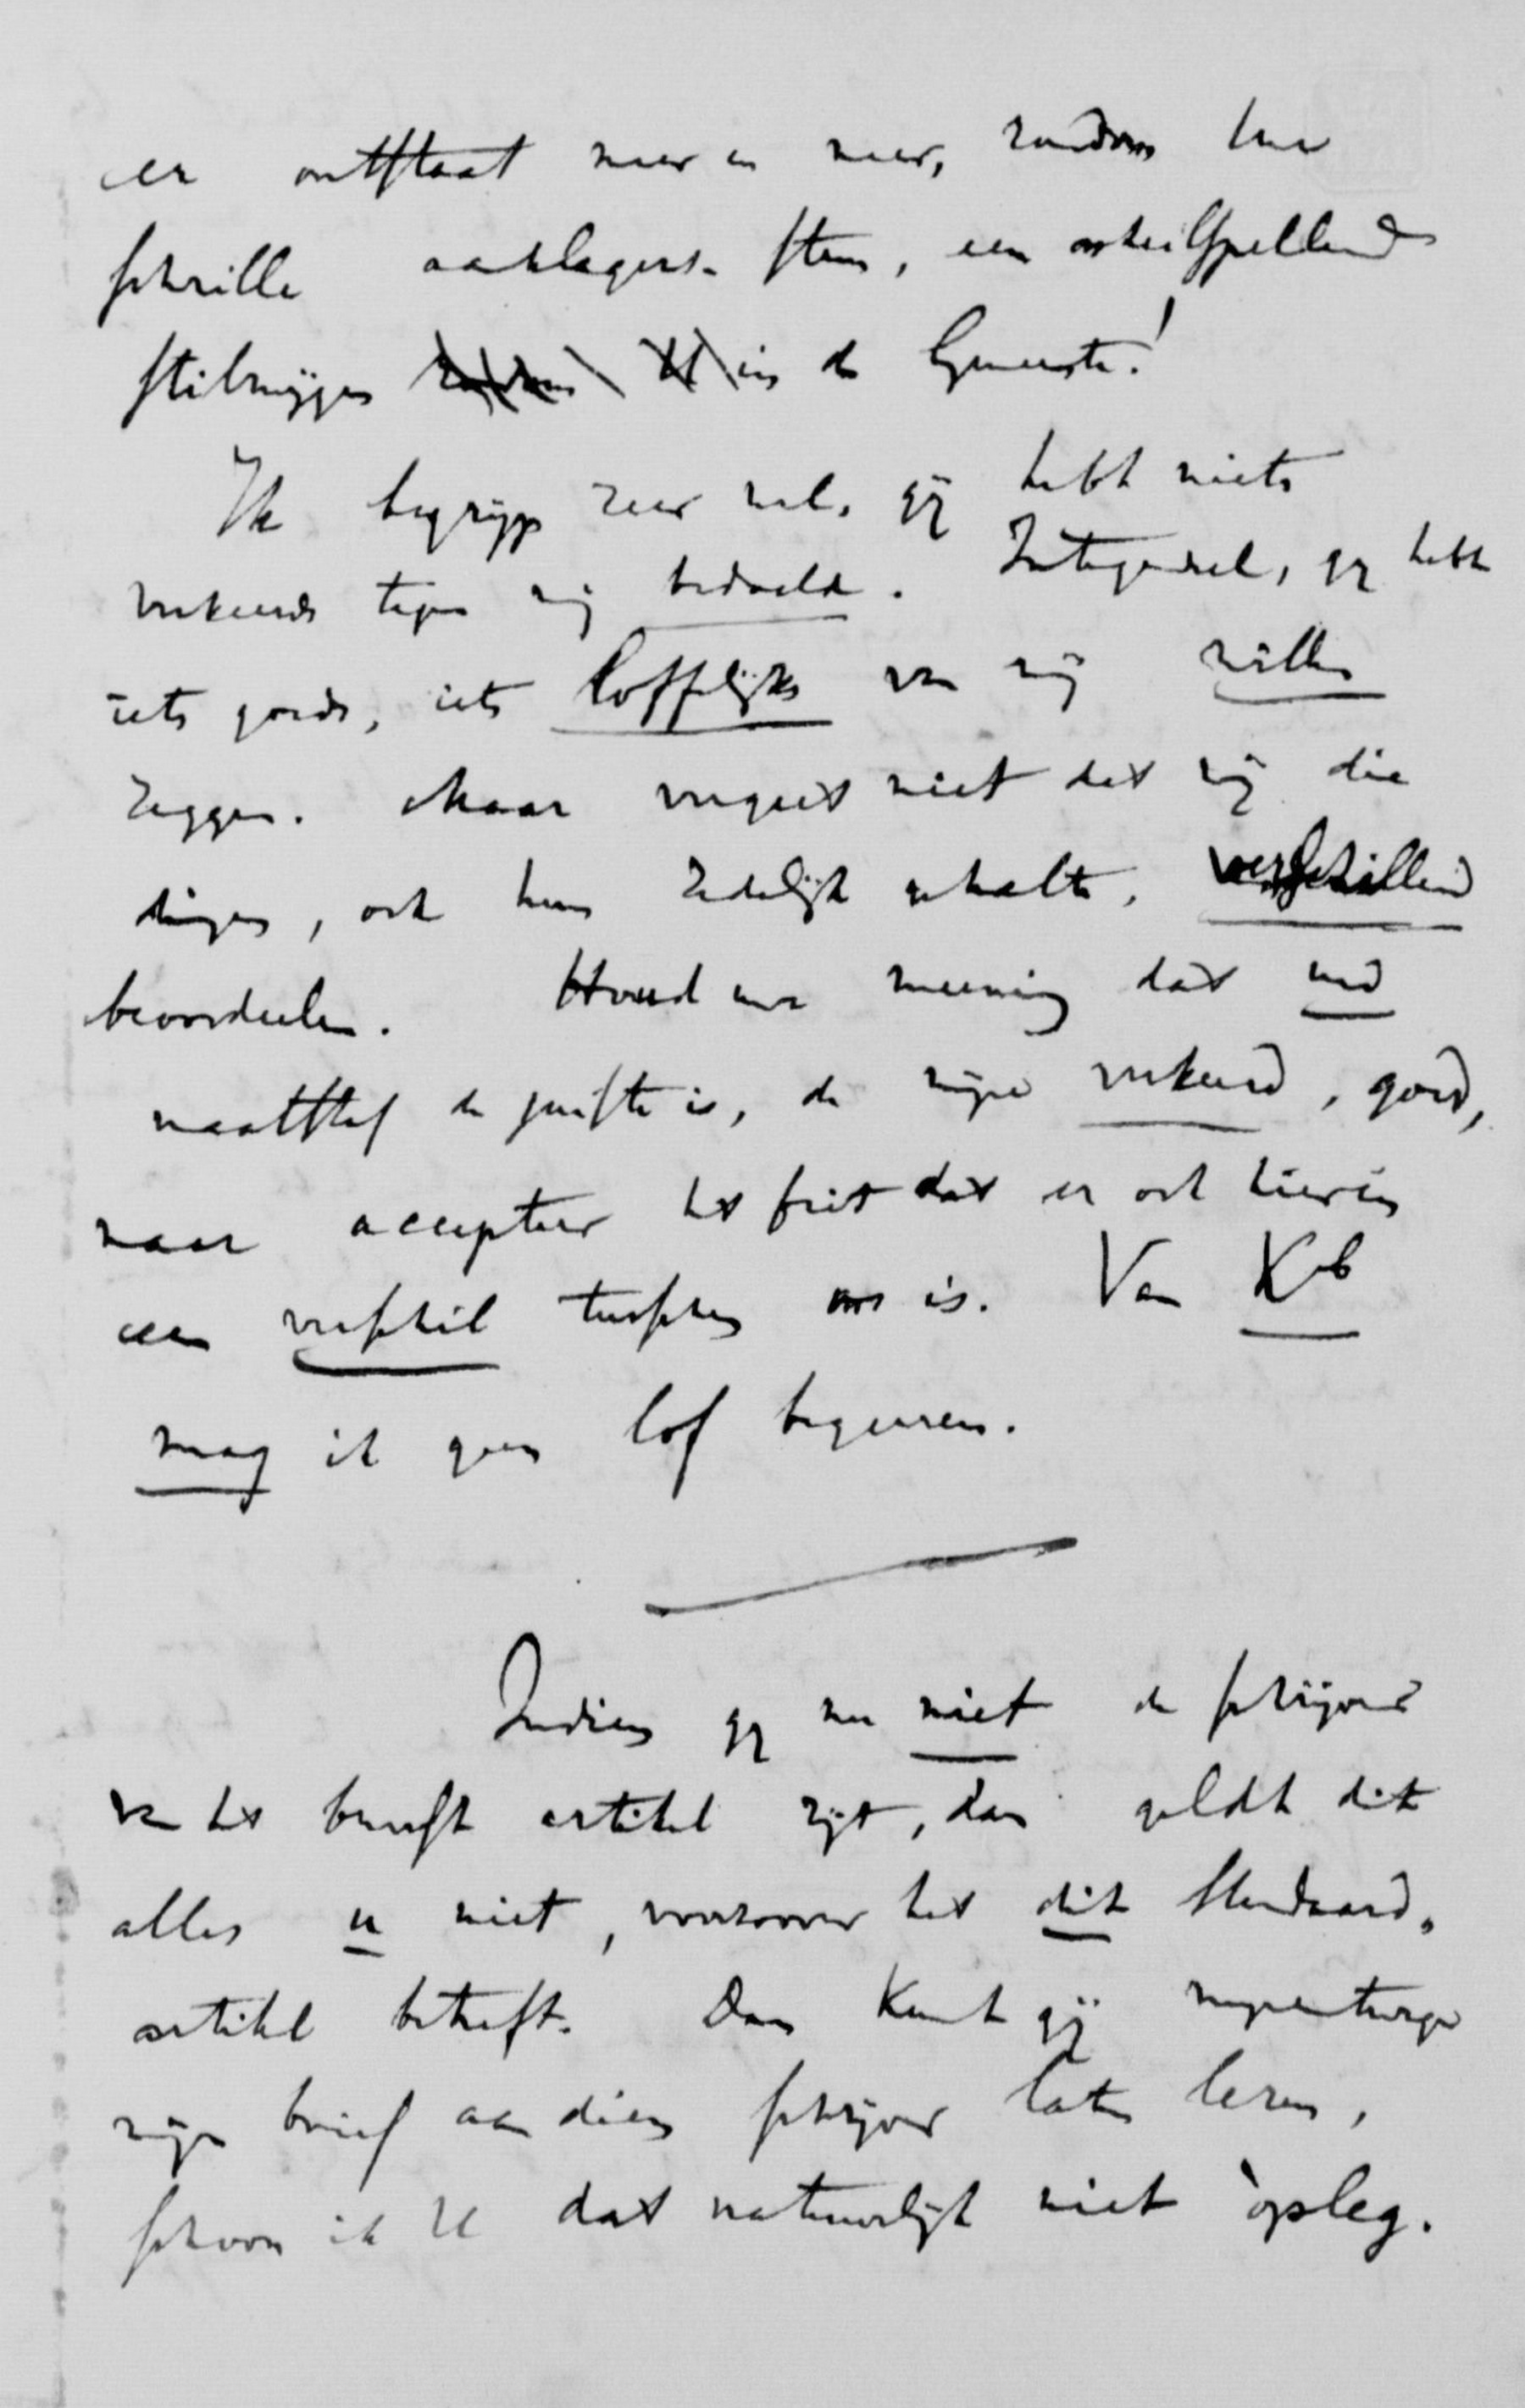 er ontstaat meer en meer, rondom uw
schrille aanklagers-stem, een onheilspellend
stilzwijgen rondom U in de Gemeente!
Ik begrijp zeer wel, gij hebt niets
verkeerds tegen mij bedoeld. Integendeel, gij hebt
iets goeds, iets loffelijks van mij willen
zeggen. Maar vergeet niet dat wij die
dingen, ook hun zedelijk gehalte, verschillend
beoordeelen. Houd uw meening dat uwe
maatstaf de juiste is, de mijne verkeerd, goed,
maar accepteer het feit dat er ook hierin
een verschil tusschen ons is. Van
mag ik geen lof begeeren.
Indien gij nu niet de schrijver
van het bewust artikel zijt, dan geldt dit
alles u niet, voorzoover het dit Standaard-
artikel betreft. Dan kunt gij
mijn brief aan dien schrijver laten lezen,
schoon ik U dat natuurlijk niet òpleg.